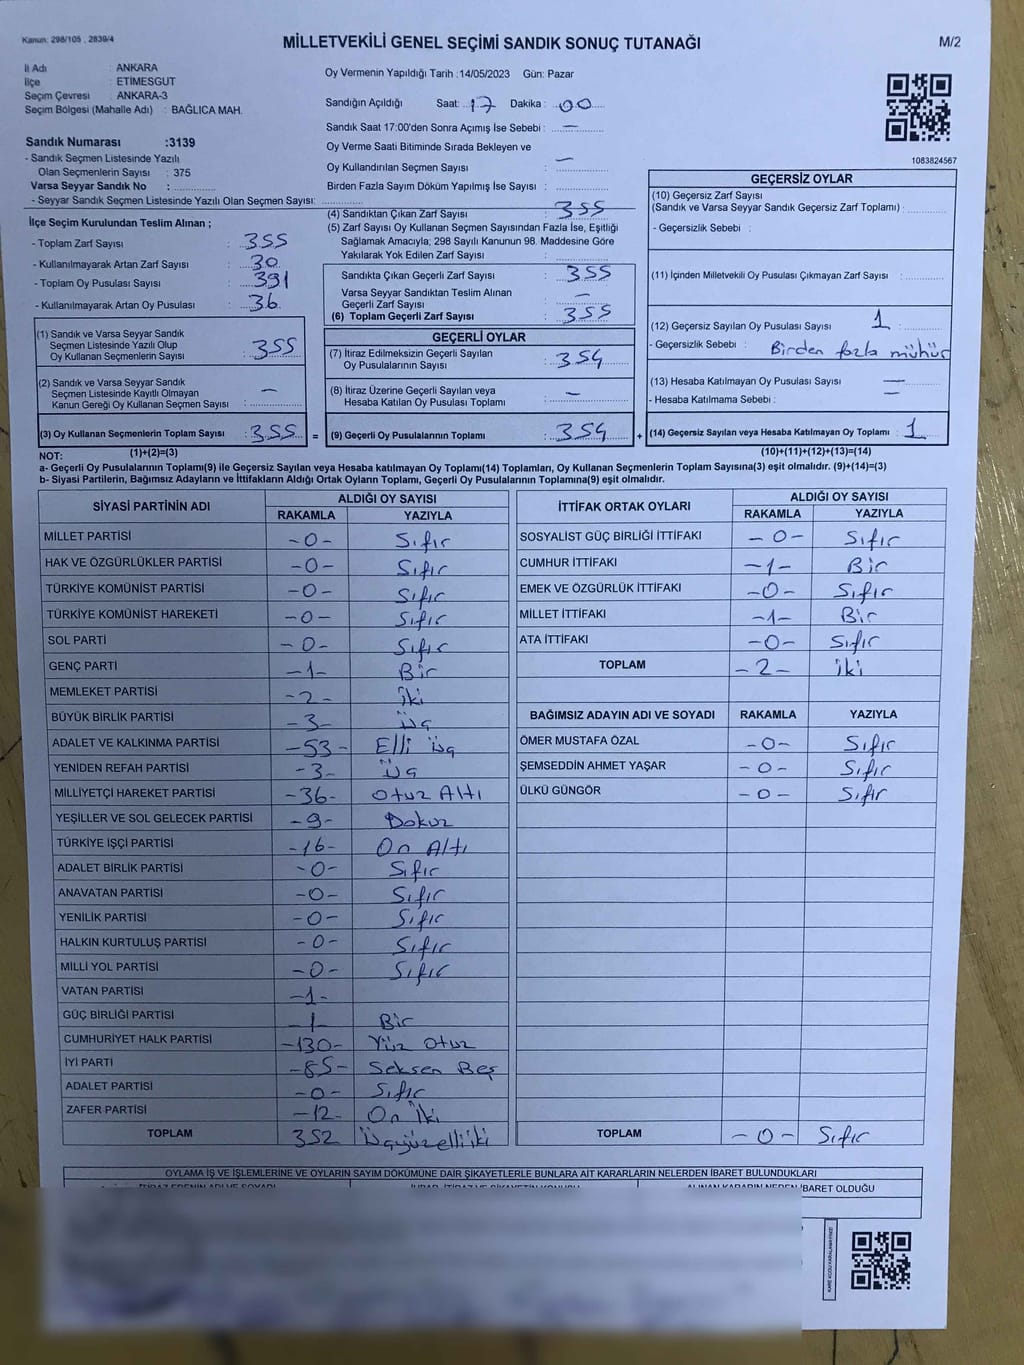 Kanun: 298/105 , 2839/4
MİLLETVEKİLİ GENEL SEÇİMİ SANDIK SONUÇ TUTANAĞI
M/2
İl Adı : ANKARA
İlçe : ETİMESGUT
Seçim Çevresi : ANKARA-3
Seçim Bölgesi (Mahalle Adı) : BAĞLICA MAH.
Oy Vermenin Yapıldığı Tarih :14/05/2023 Gün: Pazar
Sandığın Açıldığı Saat: 17 Dakika : 00
Sandık Saat 17:00'den Sonra Açımış İse Sebebi : —
Oy Verme Saati Bitiminde Sırada Bekleyen ve
Oy Kullandırılan Seçmen Sayısı : —
Birden Fazla Sayım Döküm Yapılmış İse Sayısı :
1083824567
Sandık Numarası :3139
- Sandık Seçmen Listesinde Yazılı
Olan Seçmenlerin Sayısı : 375
Varsa Seyyar Sandık No :
- Seyyar Sandık Seçmen Listesinde Yazılı Olan Seçmen Sayısı:
İlçe Seçim Kurulundan Teslim Alınan ;
- Toplam Zarf Sayısı : 355
- Kullanılmayarak Artan Zarf Sayısı : 30
- Toplam Oy Pusulası Sayısı : 391
- Kullanılmayarak Artan Oy Pusulası : 36
(1) Sandık ve Varsa Seyyar Sandık
Seçmen Listesinde Yazılı Olup
Oy Kullanan Seçmenlerin Sayısı : 355
(2) Sandık ve Varsa Seyyar Sandık
Seçmen Listesinde Kayıtlı Olmayan
Kanun Gereği Oy Kullanan Seçmen Sayısı : —
(3) Oy Kullanan Seçmenlerin Toplam Sayısı : 355 =
(1)+(2)=(3)
(4) Sandıktan Çıkan Zarf Sayısı : 355
(5) Zarf Sayısı Oy Kullanan Seçmen Sayısından Fazla İse, Eşitliği
Sağlamak Amacıyla; 298 Sayılı Kanunun 98. Maddesine Göre
Yakılarak Yok Edilen Zarf Sayısı :
Sandıkta Çıkan Geçerli Zarf Sayısı : 355
Varsa Seyyar Sandıktan Teslim Alınan
Geçerli Zarf Sayısı : —
(6) Toplam Geçerli Zarf Sayısı : 355
GEÇERLİ OYLAR
(7) İtiraz Edilmeksizin Geçerli Sayılan
Oy Pusulalarının Sayısı : 354
(8) İtiraz Üzerine Geçerli Sayılan veya
Hesaba Katılan Oy Pusulası Toplamı : —
(9) Geçerli Oy Pusulalarının Toplamı : 354 +
GEÇERSİZ OYLAR
(10) Geçersiz Zarf Sayısı
(Sandık ve Varsa Seyyar Sandık Geçersiz Zarf Toplamı) :
- Geçersizlik Sebebi :
(11) İçinden Milletvekili Oy Pusulası Çıkmayan Zarf Sayısı :
(12) Geçersiz Sayılan Oy Pusulası Sayısı : 1
- Geçersizlik Sebebi : Birden fazla mühür
(13) Hesaba Katılmayan Oy Pusulası Sayısı : —
- Hesaba Katılmama Sebebi : —
(14) Geçersiz Sayılan veya Hesaba Katılmayan Oy Toplamı : 1
(10)+(11)+(12)+(13)=(14)
NOT:
a- Geçerli Oy Pusulalarının Toplamı(9) ile Geçersiz Sayılan veya Hesaba katılmayan Oy Toplamı(14) Toplamları, Oy Kullanan Seçmenlerin Toplam Sayısına(3) eşit olmalıdır. (9)+(14)=(3)
b- Siyasi Partilerin, Bağımsız Adayların ve İttifakların Aldığı Ortak Oyların Toplamı, Geçerli Oy Pusulalarının Toplamına(9) eşit olmalıdır.
SİYASİ PARTİNİN ADI ALDIĞI OY SAYISI
RAKAMLA YAZIYLA
MİLLET PARTİSİ -0- Sıfır
HAK VE ÖZGÜRLÜKLER PARTİSİ -0- Sıfır
TÜRKİYE KOMÜNİST PARTİSİ -0- Sıfır
TÜRKİYE KOMÜNİST HAREKETİ -0- Sıfır
SOL PARTİ -0- Sıfır
GENÇ PARTİ -1- Bir
MEMLEKET PARTİSİ -2- İki
BÜYÜK BİRLİK PARTİSİ -3- Üç
ADALET VE KALKINMA PARTİSİ -53- Elli Üç
YENİDEN REFAH PARTİSİ -3- Üç
MİLLİYETÇİ HAREKET PARTİSİ -36- Otuz Altı
YEŞİLLER VE SOL GELECEK PARTİSİ -9- Dokuz
TÜRKİYE İŞÇİ PARTİSİ -16- On Altı
ADALET BİRLİK PARTİSİ -0- Sıfır
ANAVATAN PARTİSİ -0- Sıfır
YENİLİK PARTİSİ -0- Sıfır
HALKIN KURTULUŞ PARTİSİ -0- Sıfır
MİLLİ YOL PARTİSİ -0- Sıfır
VATAN PARTİSİ -1-
GÜÇ BİRLİĞİ PARTİSİ -1- Bir
CUMHURİYET HALK PARTİSİ -130- Yüz Otuz
İYİ PARTİ -85- Seksen Beş
ADALET PARTİSİ -0- Sıfır
ZAFER PARTİSİ -12- On İki
TOPLAM 352 Üçyüzelliiki
İTTİFAK ORTAK OYLARI ALDIĞI OY SAYISI
RAKAMLA YAZIYLA
SOSYALİST GÜÇ BİRLİĞİ İTTİFAKI -0- Sıfır
CUMHUR İTTİFAKI -1- Bir
EMEK VE ÖZGÜRLÜK İTTİFAKI -0- Sıfır
MİLLET İTTİFAKI -1- Bir
ATA İTTİFAKI -0- Sıfır
TOPLAM -2- İki
BAĞIMSIZ ADAYIN ADI VE SOYADI RAKAMLA YAZIYLA
ÖMER MUSTAFA ÖZAL -0- Sıfır
ŞEMSEDDİN AHMET YAŞAR -0- Sıfır
ÜLKÜ GÜNGÖR -0- Sıfır
TOPLAM -0- Sıfır
OYLAMA İŞ VE İŞLEMLERİNE VE OYLARIN SAYIM DÖKÜMÜNE DAİR ŞİKAYETLERLE BUNLARA AİT KARARLARIN NELERDEN İBARET BULUNDUKLARI
ALINAN KARARIN NEDEN İBARET OLDUĞU